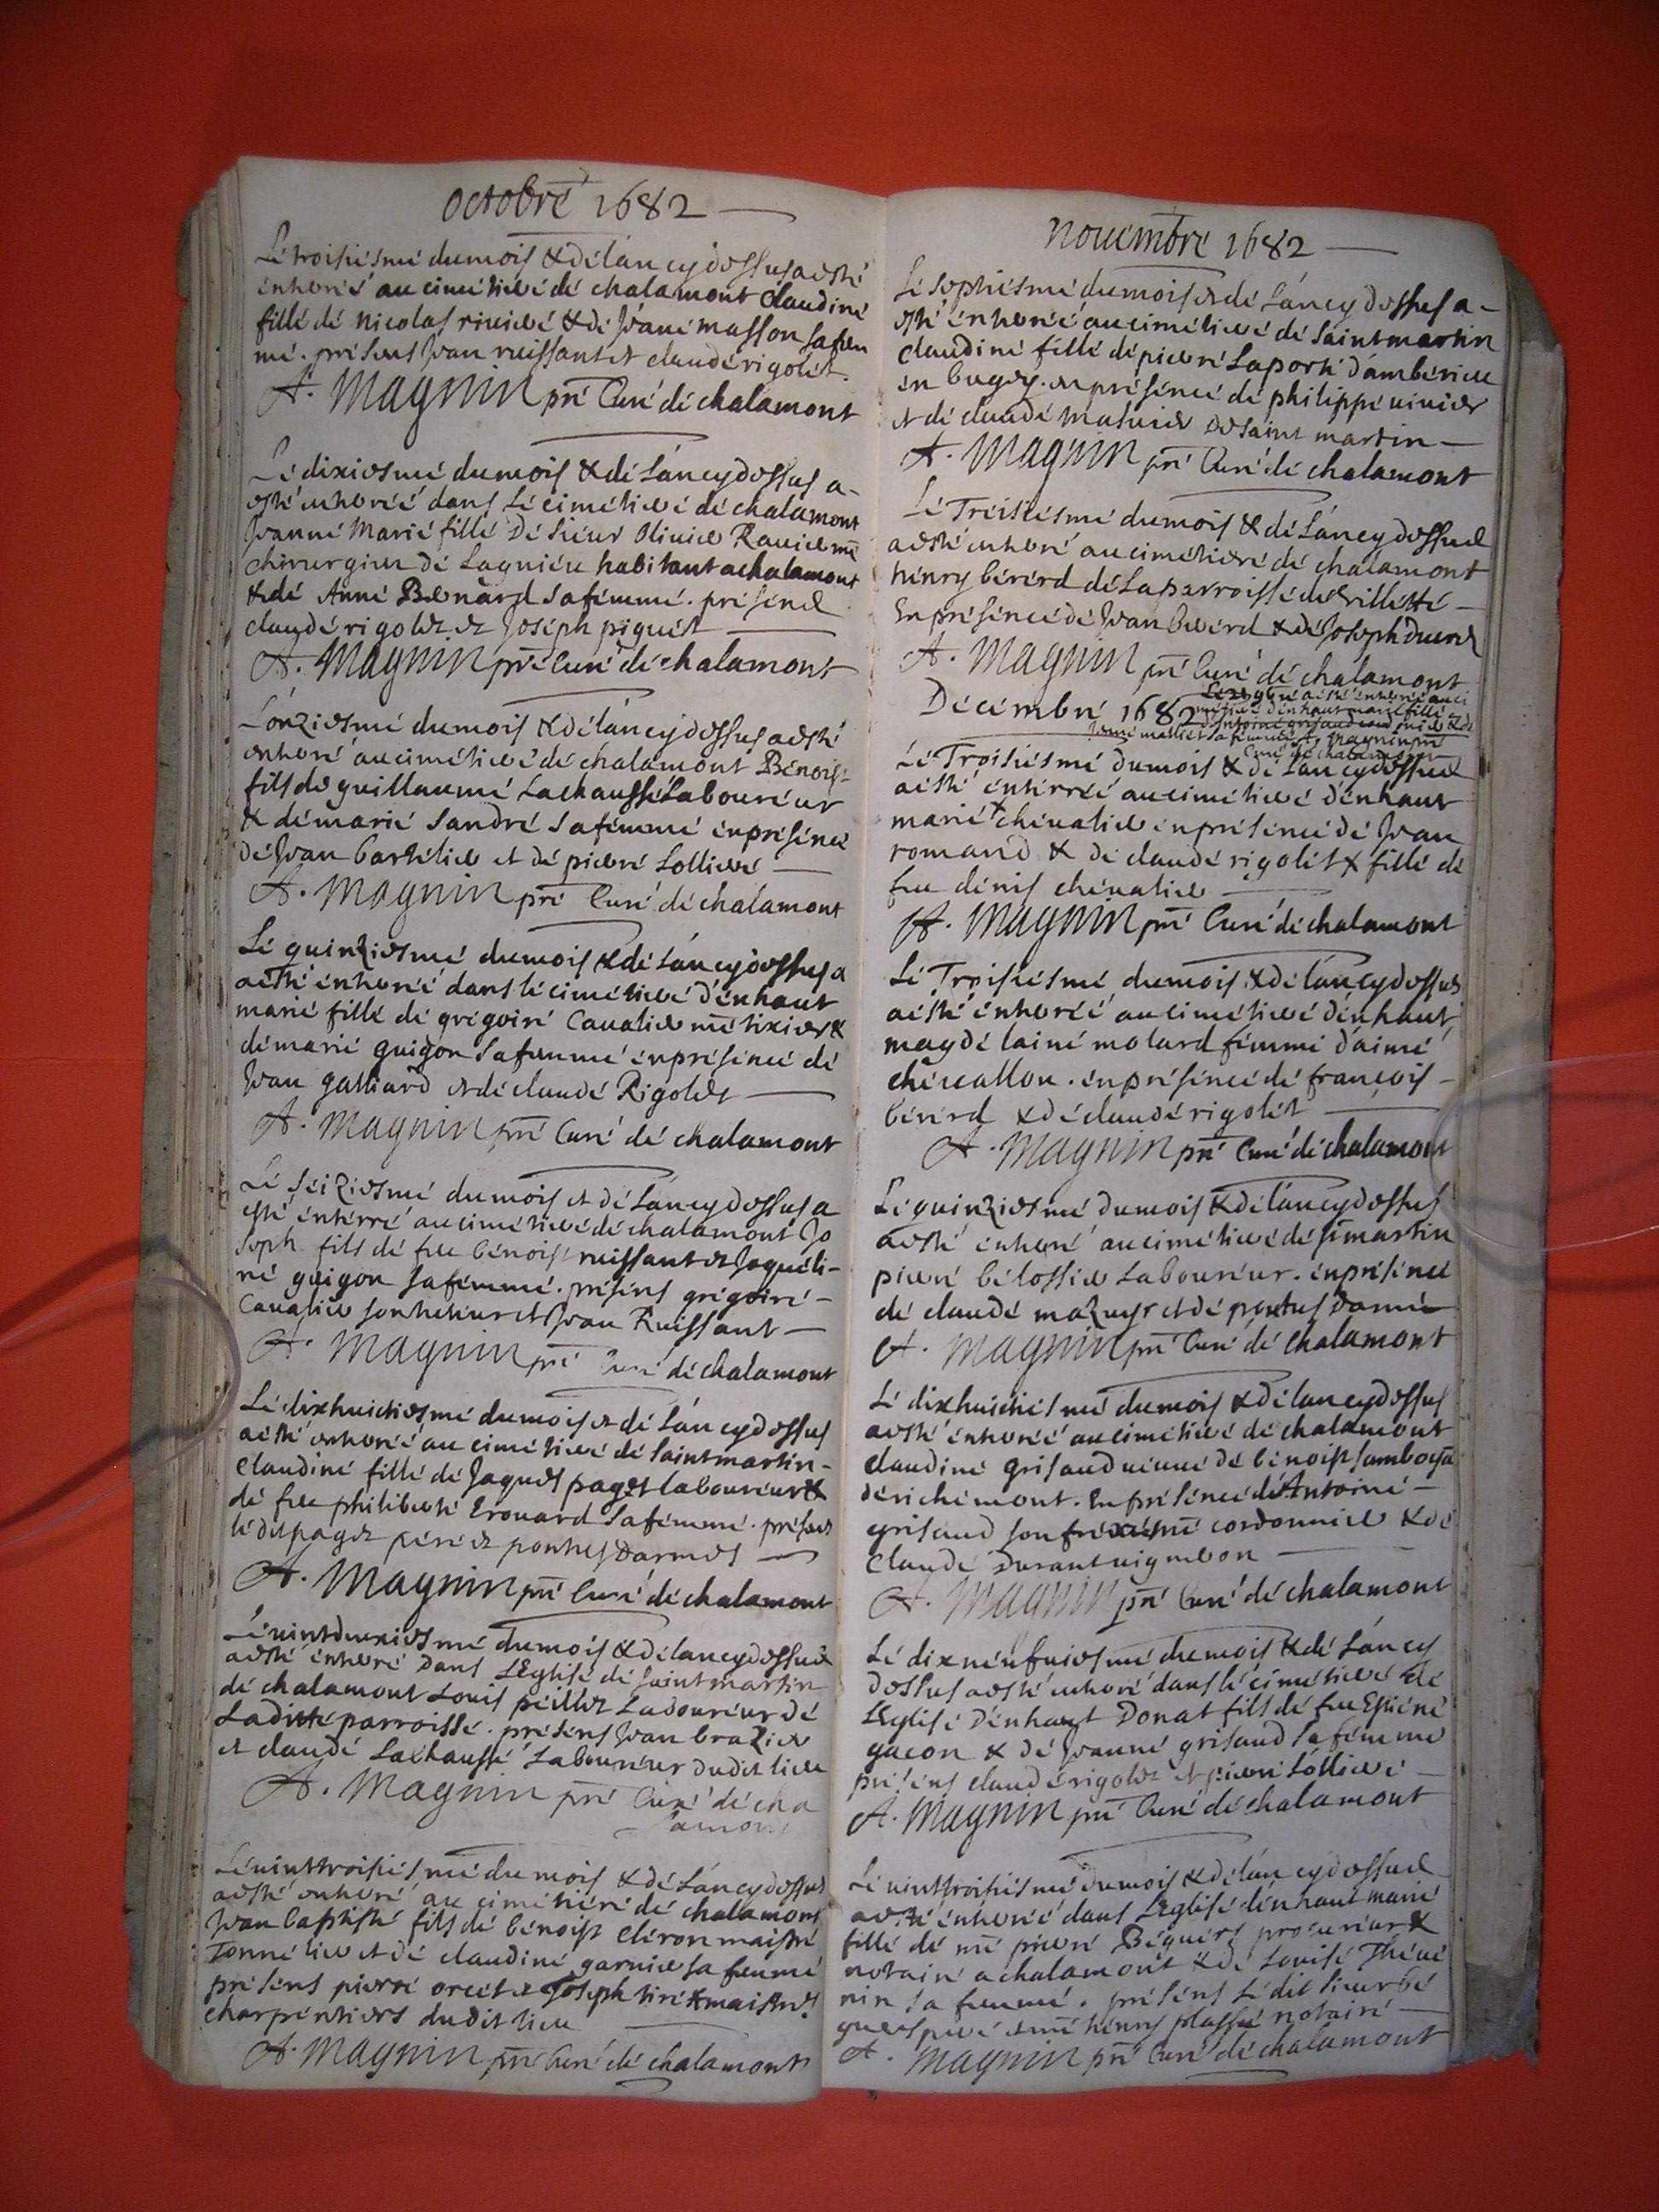 octobre 1682
Le troisiesme du mois & de lan cy dessus a esté
enterré au cimetiere de chalamont Claudine
fille de Nicolas riviere & de Jeane masson sa fem
me. presens Jean ruissant et claude rigolet.
A. Magnin pre Curé de chalamont
Le dixiesme du mois & de lan cy dessus a-
esté enterreé dans le cimetiere de chalamont
Jeanne Marie fille de sieur Olivier Ravier me
chirurgien de Lagnieu habitant a chalamont
& de Anne Benard sa femme. present
claude rigolet et Joseph piquet
A. Magnin pre Curé de chalamont
Lonziesme du mois & de lan cy dessus a esté
enterré au cimetiere de chalamont Benoist
fils de guillaume Lachausse Laboureur
& de marie Sandre sa femme en presence
de Jean bartelier et de pierre Lolliere
A. Magnin pre Curé de chalamont
Le quinziesme du mois & de lan cy dessus a
a esté enterré dans le cimetiere denhaut
marie fille de gregoire Cavalier me tixier &
de marie guigon sa femme en presence de
Jean galliard et de claude Rigolet
A. Magnin pre Curé de chalamont
Le seiziesme du mois et de lan cy dessus a
esté enterré au cimetiere de chalamont Jo
seph fils de feu benoist ruissant et Jaqueli-
ne guigon sa femme. presens gregoire-
Cavalier et Jean Ruissant
A. Magnin pre Curé de chalamont
Le dixhuictiesme du mois et de lan cy dessus
a esté enterré au cimetiere de saint martin-
Claudine fille de Jaques paget laboureur &
de feu philiberte Erouard sa femme. presens
ledit paget pere et ponthus darmes
A. Magnin pre Curé de chalamont
Le vintdeuxiesme du mois & de lan cy dessus
a esté enterré dans Leglise de saint martin
de chalamont Louis peillet Laboureur de
Laditte parroisse. presens Jean brazier
et claude Lachausse Laboureur dudit lieu
A. Magnin pre Curé de cha
lamont
Le vinttroisiesme du mois & de lan cy dessus
a esté enterré au cimetiere de chalamont
Jean baptiste fils de benoist Cleron maistre
Tonnelier et de claudine garnier sa femme
presens pierre orcet et Joseph tiret maistres
charpentiers dudit lieu
A. Magnin pre Curé de chalamont
novembre 1682
Le septiesme du mois et de lan cy dessus a-
esté enterreé au cimetiere de saint martin
Claudine fille de pierre Laporte dámberieu
en bugey. en presence de philippe vivier
et de claude masuier de saint martin
A. Magnin pre Curé de chalamont
Le Treisiesme du mois & de lan cy dessus
a esté enterré au cimetiere de chalamont
henry berérd de la parroisse de villette
En presence de Jean bererd & de Joseph
A. Magnin pre Curé de chalamont
Decembre 1682
a esté enterré au ci
metiere denhaut marie fille
dantoine grisaud &de
sa femme A. Magnin pre
Curé de chalamont
Le Troisiesme du mois & de lan cy dessus
a esté enterreé au cimetiere denhaut
marie chevalier en presence de Jean
romand & de claude rigolet fille de
feu denis chevalier
A. Magnin pre Curé de chalamont
Le Troisiesme du mois & de lan cy dessus
a esté enterreé au cimetiere denhaut
maydelaine molard femme daimé
chevallon. en presence de françois-
bererd & de claude rigolet
A. Magnin pre Curé de chalamont
Le quinziesme du mois & de lan cy dessus
a esté enterré au cimetiere de st martin
pierre belossier Laboureur. en presence
de claude mazuyr et de ponthus
A. Magnin pre Curé de chalamont
Le dixhuictiesme du mois & de lan cy dessus
a esté enterreé au cimetiere de chalamont
claudine grisaud veuve de benoist
de richemont. En presence de Antoine-
grisaud son frere me cordonnier & de
Claude Durant vigneron
A. Magnin pre Curé de chalamont
Le dixneufviesme du mois & de lan cy
dessus a esté enterré dans le cimetiere de
Leglise denhaut Donat fils de feu Estiene
gacon & de Jeanne grisaud sa femme
presens claude rigolet et pierre Lolliere
A. Magnin pre Curé de chalamont
Le vinttroisiesme du mois & de lan cy dessus
a esté enterreé dans Leglise denhaut marie
fille de me pierre Beguers procureur &
notaire a chalamont & de Louise Theve
nin sa femme. presens Ledit sieur be
guers pere et me henry plasse notaire
A. Magnin pre Curé de chalamont